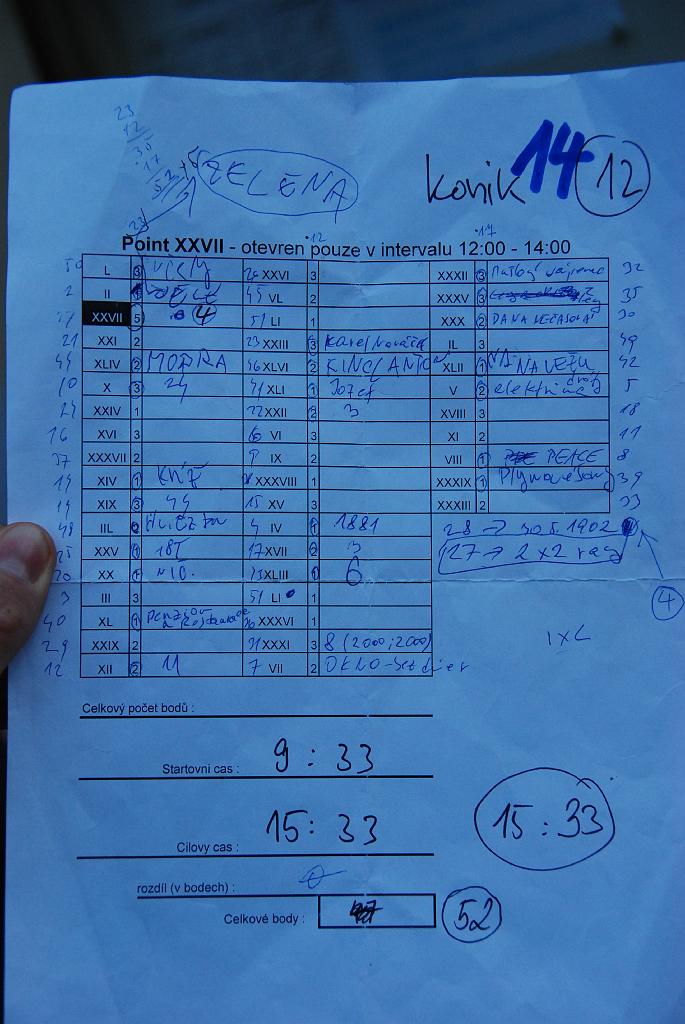 23
12
30
17
52
+5
ZELENA
konik 14 12
23 12 17
Point XXVII - otevren pouze v intervalu 12:00 - 14:00
50 L 3 26 XXVI 3 XXXII 3 32
2 II 45 VL 2 XXXV 3 35
27 XXVII 5 4 51 LI 1 XXX 2 DANA NEČASOVÁ 30
21 XXI 2 23 XXIII 3 Karel Nováček IL 3 49
44 XLIV 2 MODRA 46 XLVI 2 KINCL ANTON XLII 1 NA NAVEŽU 42
10 X 3 24 41 XLI 1 Jozef V 2 elektrina 5
24 XXIV 1 22 XXII 2 3 XVIII 3 18
16 XVI 3 6 VI 3 XI 2 11
37 XXXVII 2 9 IX 2 VIII 1 PEACE 8
14 XIV 1 KNĚZ XXXVIII 1 XXXIX 1 39
19 XIX 3 44 15 XV 3 XXXIII 2 33
48 IIL 2 4 IV 1 1881 28 → 30.5.1902
25 XXV 1 18T 17 XVII 2 3 127 → 2x2 ray
20 XX 1 NIC. XLIII 1 6
3 III 3 51 LI 1 4
40 XL 1 penzion a Restaurace 36 XXXVI 1
29 XXIX 2 31 XXXI 3 8 (2000;2000) 1XL
12 XII 2 11 7 VII 2 OKNO-bez dier
Celkový počet bodů :
Startovni cas : 9 : 33
Cilovy cas : 15 : 33 15 : 33
rozdíl (v bodech) : 0
Celkové body : 52